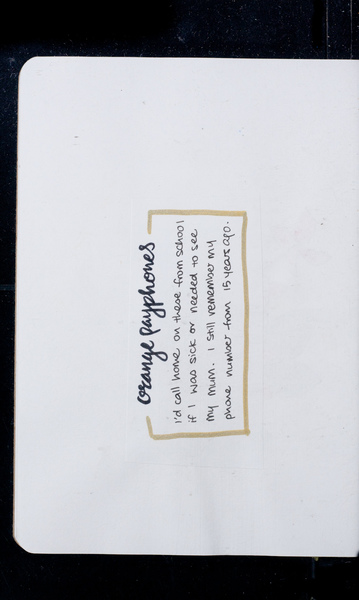 orange payphones
I'd call home on these from school
if I was sick or needed to see
my mum. I still remember my
phone number from 15 years ago.